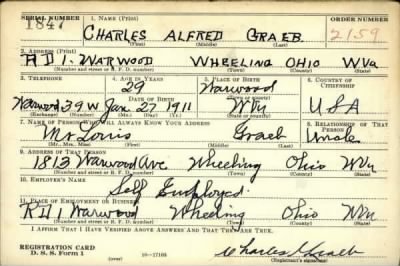 SERIAL NUMBER 1. Name (Print) ORDER NUMBER
1847 CHARLES ALFRED GRAEB 2159
(First) (Middle) (Last)
2. Address (Print)
RD 1. WARWOOD WHEELING OHIO WVA
(Number and street or R. F. D. number) (Town) (County) (State)
3. Telephone 4. Age in Years 5. Place of Birth 6. Country of Citizenship
29 Warwood
Date of Birth
Warwood 39W Jan 27 1911 WVa USA
(Exchange) (Number) (Mo.) (Day) (Yr.) (State or country)
7. Name of Person Who Will Always Know Your Address 8. Relationship of That Person
Mr Louis Graeb Uncle
(Mr., Mrs., Miss) (First) (Middle) (Last)
9. Address of That Person
1813 Warwood Ave Wheeling Ohio WVa
(Number and street or R. F. D. number) (Town) (County) (State)
10. Employer's Name
Self Employed
11. Place of Employment or Business
RD 1 Warwood Wheeling Ohio WVa
(Number and street or R. F. D. number) (Town) (County) (State)
I Affirm That I Have Verified Above Answers and That They Are True.
REGISTRATION CARD
D. S. S. Form 1 (over) 16—17105 Charles A Graeb
(Registrant's signature)